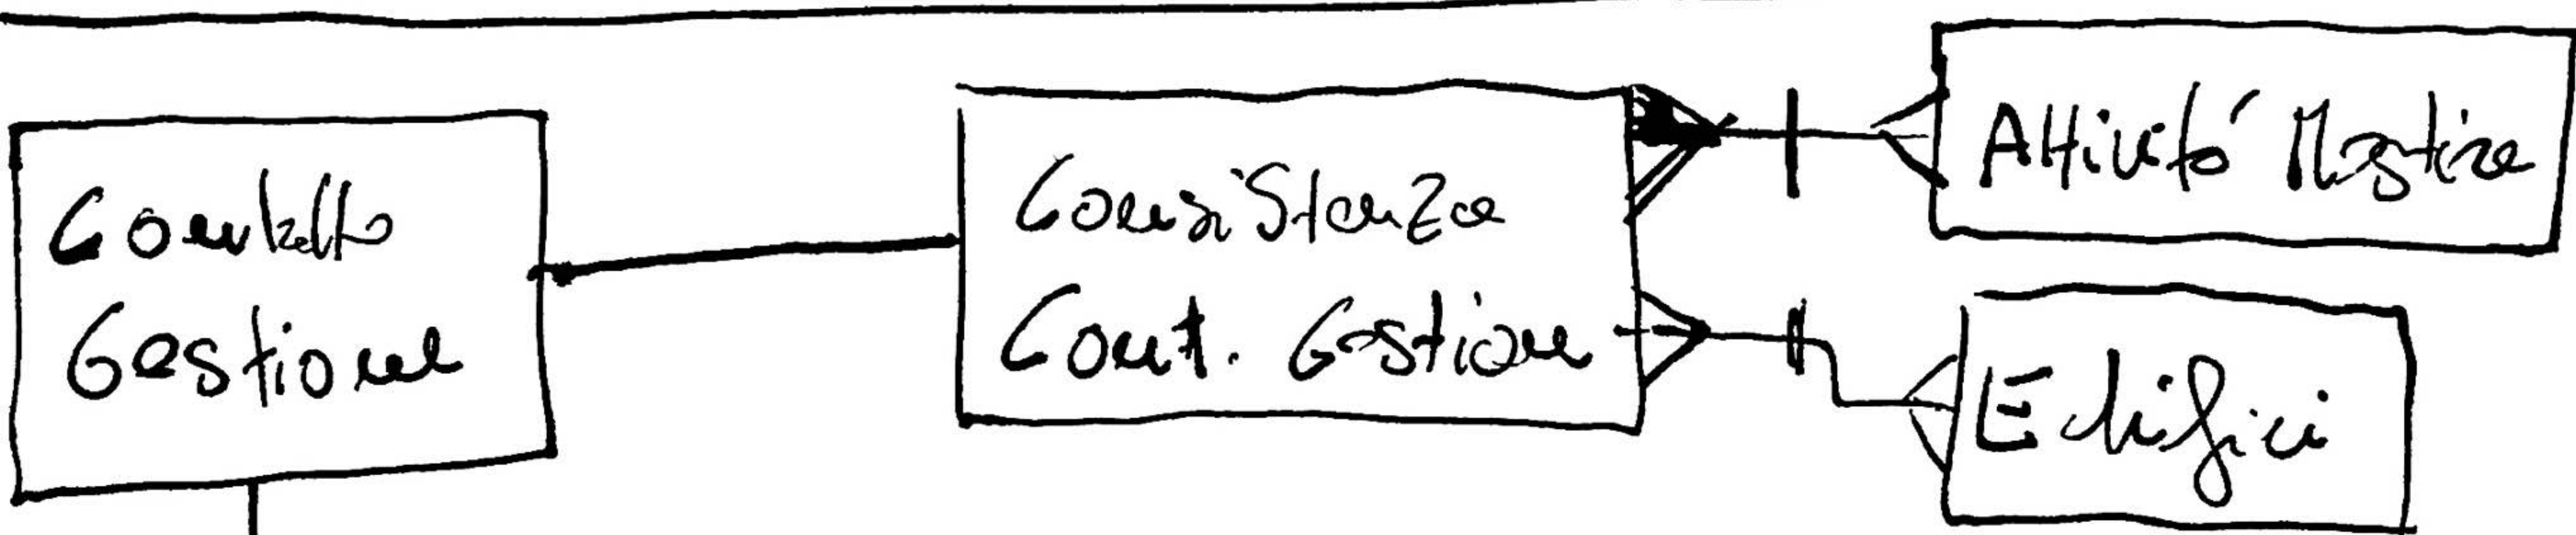 Contratto
Gestione
Consistenza
Cont. Gestione
Attività Mestiere
Edifici